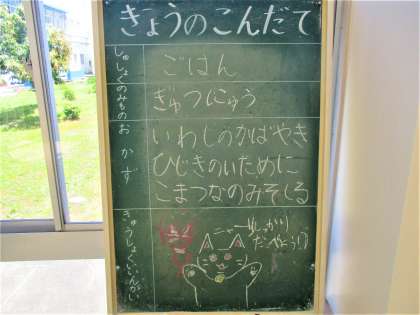 きょうのこんだて
しゅしょく
ごはん
のみもの
ぎゅうにゅう
おかず
いわしのかばやき
ひじきのいために
こまつなのみそしる
きゅうしょくいいんかい
ニャー